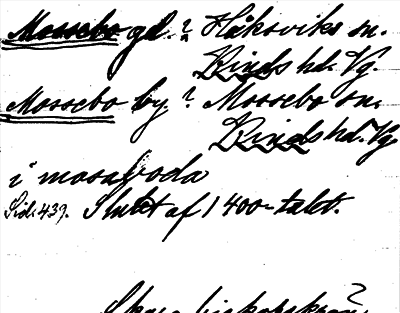 Mossebo gd. ? Håksviks sn.
Kinds hd. Vg.
Mossebo by ? Mossebo sn.
Kinds hd. Vg.
i mosaboda
Sid. 439. Slutet af 1400-talet.
Skara biskopskrön